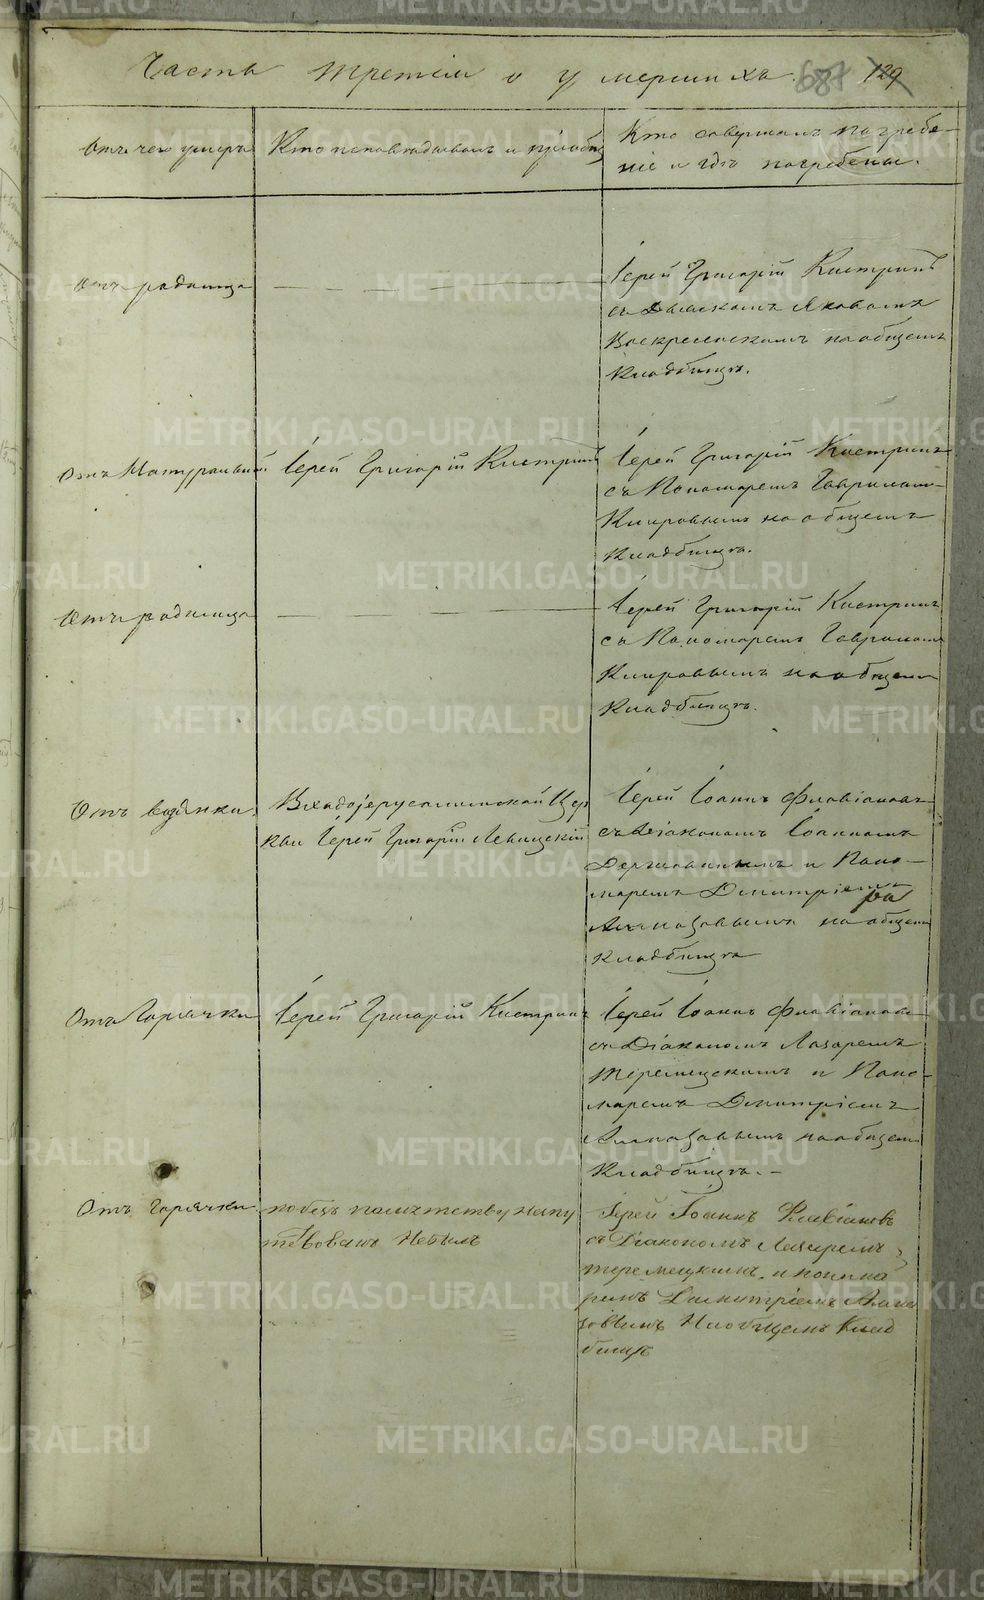 Часть третія о умершихъ. 687 129
Отъ чего умеръ
Кто исповѣдывалъ и пріобщ
Кто совершалъ погребе-
ніе и гдѣ погребены.
Отъ родимца
Іерей Григорій Кистринъ
съ Дьячкомъ Яковомъ
Воскресенскимъ на общемъ
Кладбищѣ.
Отъ Натуральной
Іерей Григорій Кистринъ
Іерей Григорій Кистринъ
съ Пономаремъ Гавриломъ
Кипровымъ на общемъ
Кладбищѣ.
Отъ родимца
Іерей Григорій Кистринъ
съ Пономаремъ Гавриломъ
Кипровымъ на общемъ
Кладбищѣ.
Отъ водянки
Входоіерусалимской Цер
кви Іерей Григорій Левицскій
Іерей Іоаннъ Флавіановъ
съ Діакономъ Іоанномъ
и Поно-
маремъ Димитріемъ
на общемъ
Кладбищѣ
Отъ Горячки
Іерей Григорій Кистринъ
Іерей Іоаннъ Флавіановъ
съ Діакономъ Лазаремъ
и Поно-
маремъ Димитріемъ
Алмазовымъ на общемъ
Кладбищѣ.-
Отъ горячки
напу
тствованъ Небылъ
Іерей Іоаннъ Флавіановъ
съ Діакономъ Лазаремъ
и понома
ремъ Димитріемъ Алма
зовымъ На общемъ Клад
бищѣ
METRIKI.GASO-URAL.RU